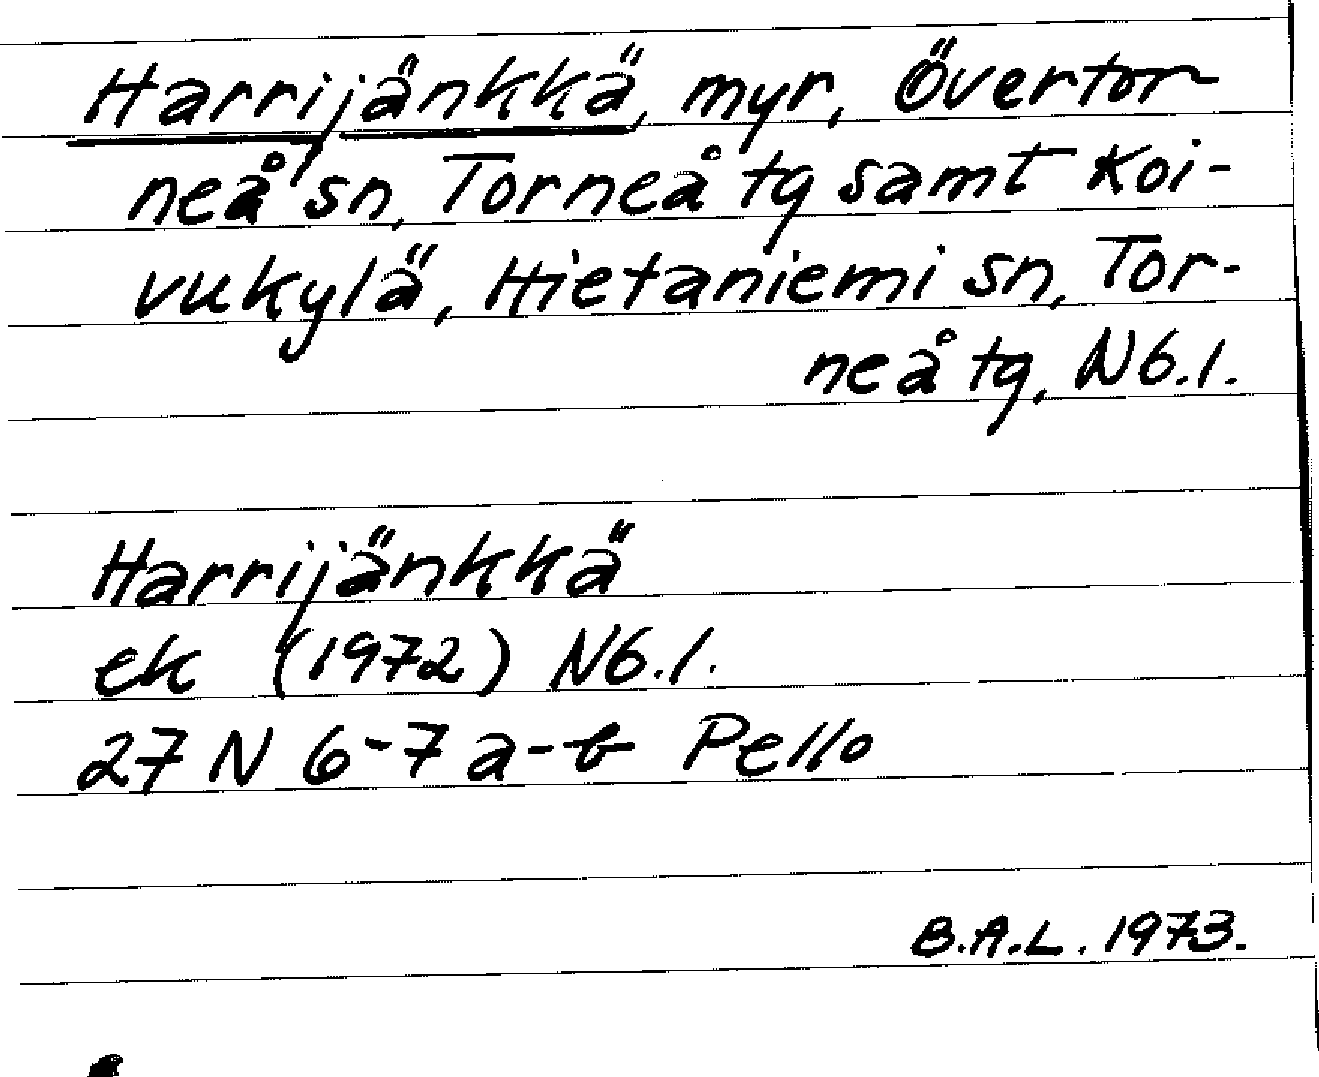 Harrijänkkä, myr, Övertor
neå sn, Torneå tg samt Koi-
vukylä, Hietaniemi sn, Tor-
neå tg, N6.1.
Harrijänkkä
ek (1972) N6.1.
27 N 6-7 a-b Pello
B.A.L. 1973.